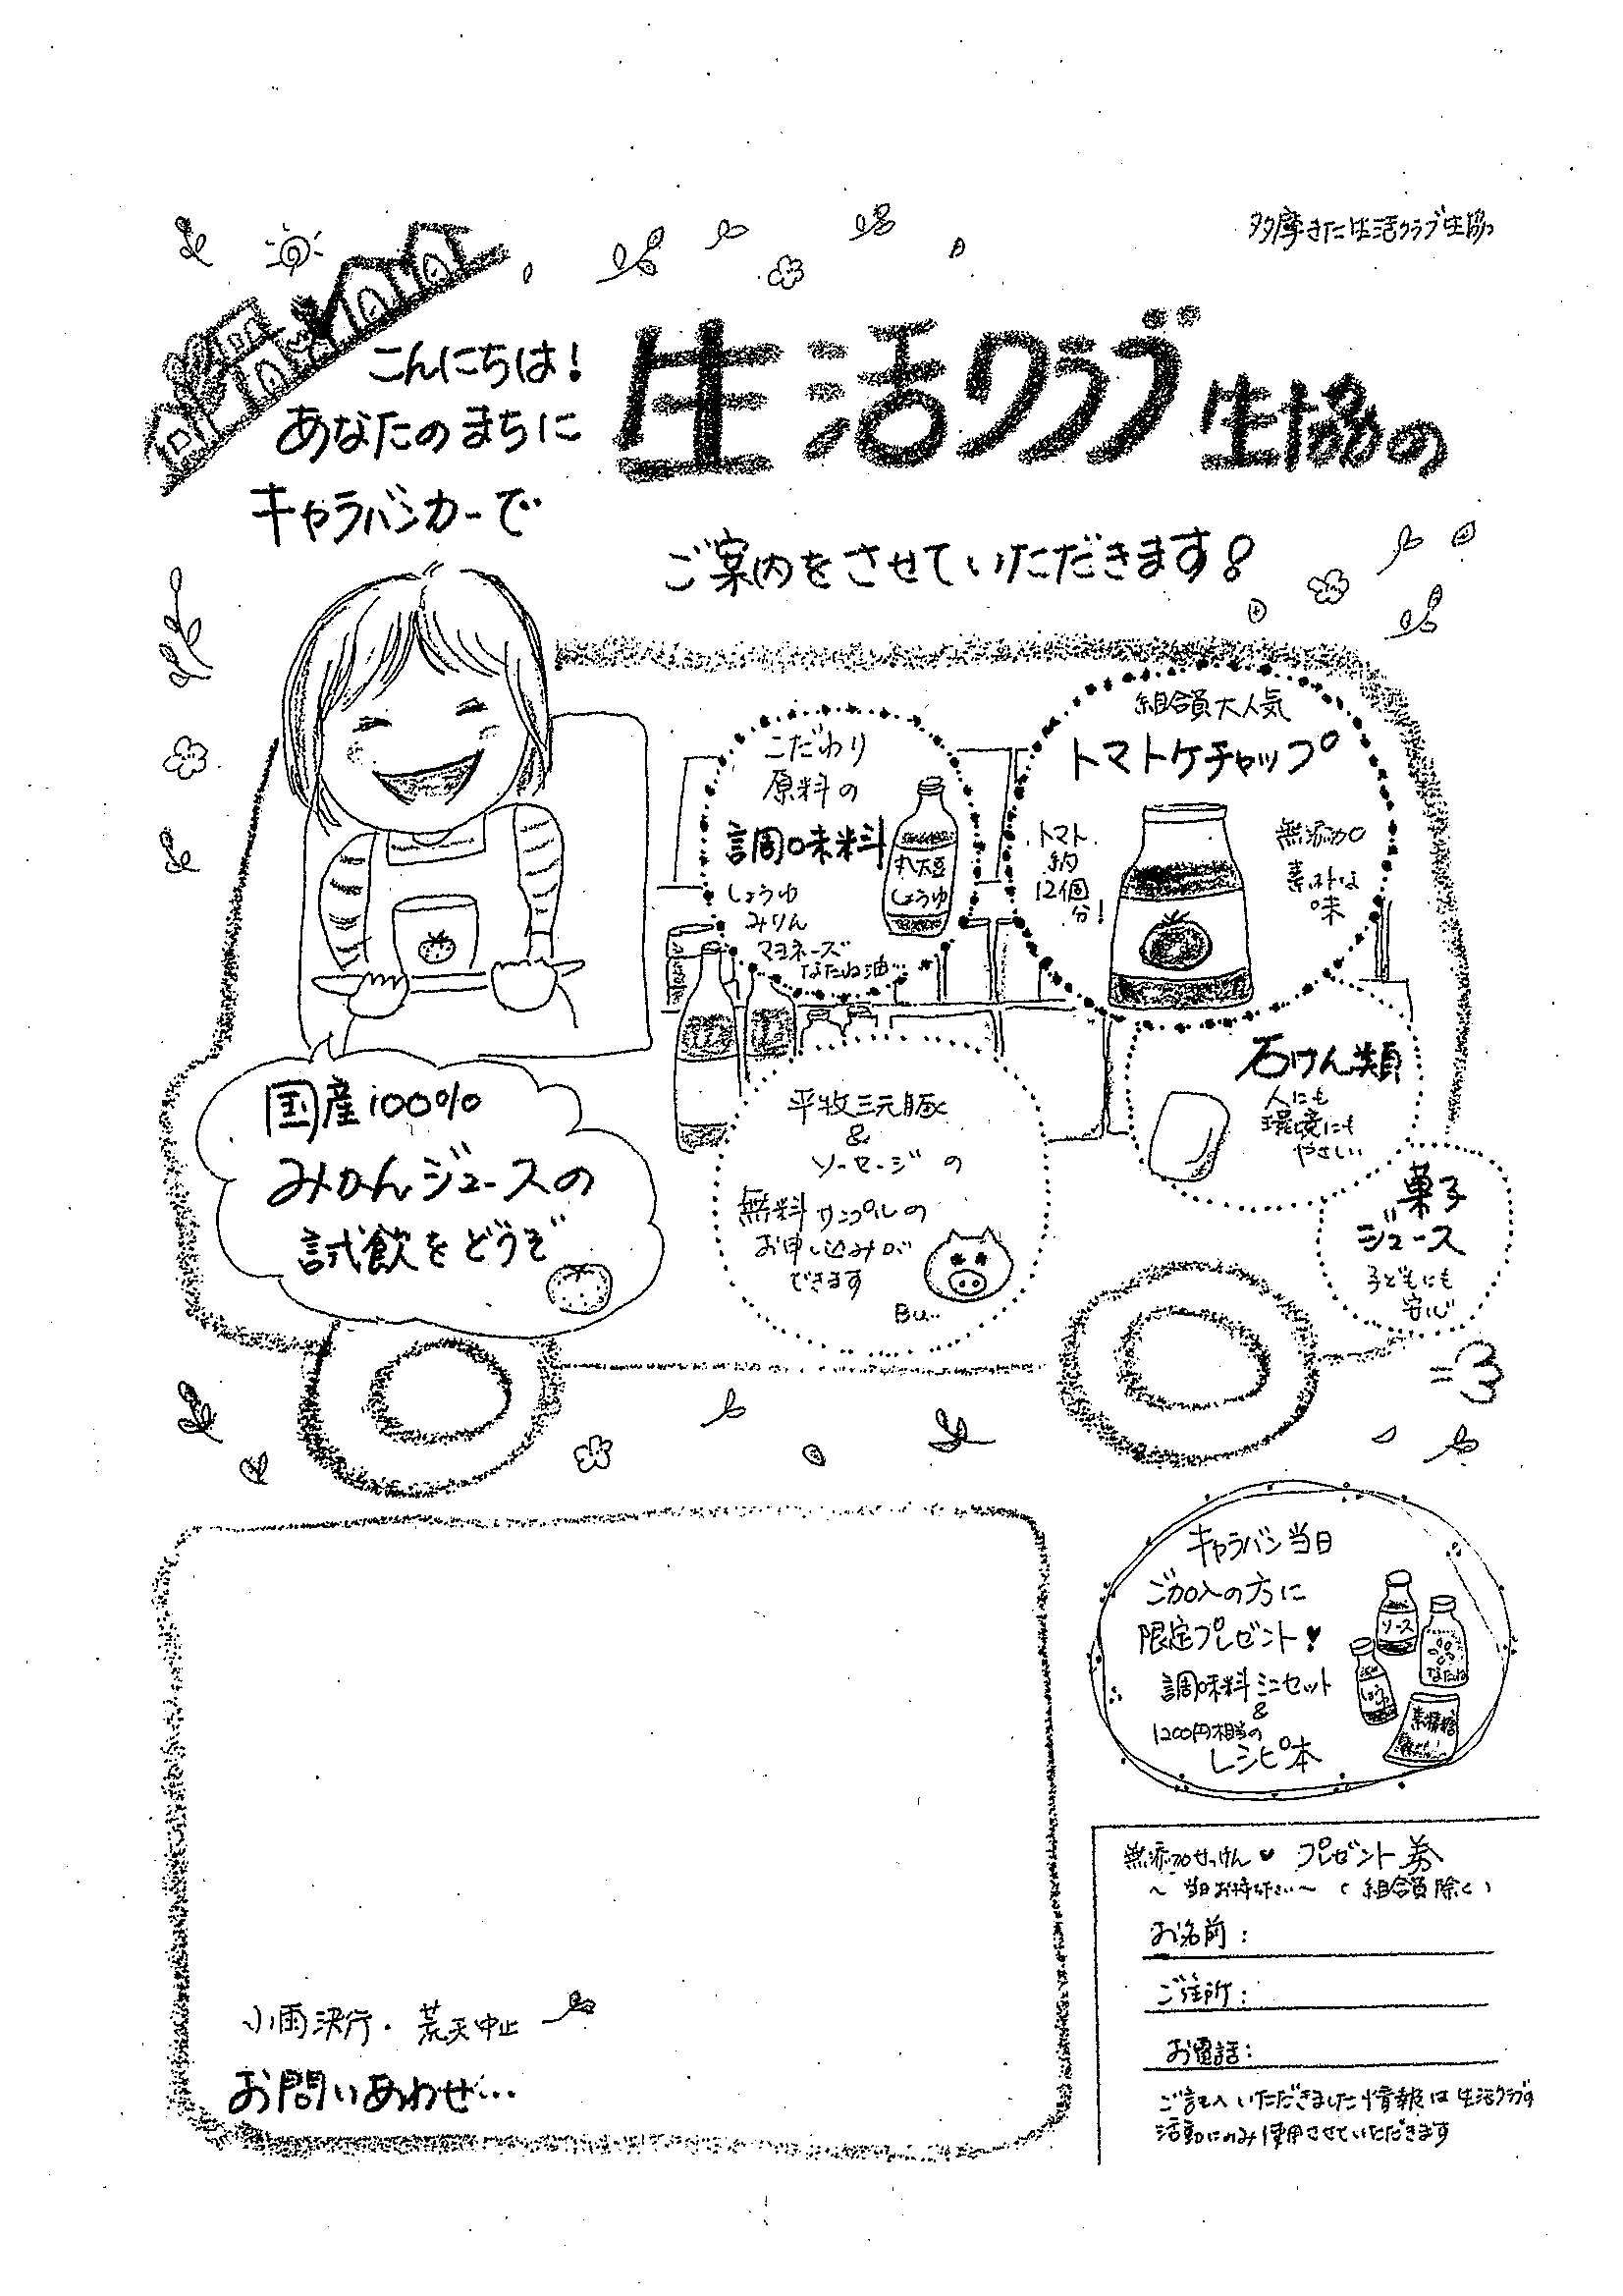 多摩きた生活クラブ生協
こんにちは!
あなたのまちに
キャラバンカーで
生活クラブ生協の
ご案内をさせていただきます!
こだわり
原料の
調味料
しょうゆ
みりん
マヨネーズ
なたね油…
丸大豆
しょうゆ
組合員大人気
トマトケチャップ
トマト
約
12個
分!
無添加
素朴な
味
石けん類
人にも
環境にも
やさしい
国産100%
みかんジュースの
試飲をどうぞ
平牧三元豚
&
ソーセージの
無料サンプルの
お申し込みが
できます
Bu..
菓子
ジュース
子どもにも
安心
キャラバン当日
ご加入の方に
限定プレゼント♥
調味料ミニセット
&
1200円相当の
レシピ本
ソース
なたね
しょうゆ
素精糖
無添加せっけん♥プレゼント券
~当日お持ち下さい~(組合員除く)
お名前:
ご住所:
お電話:
ご記入いただきました情報は生活クラブの
活動にのみ使用させていただきます
小雨決行・荒天中止
お問いあわせ…